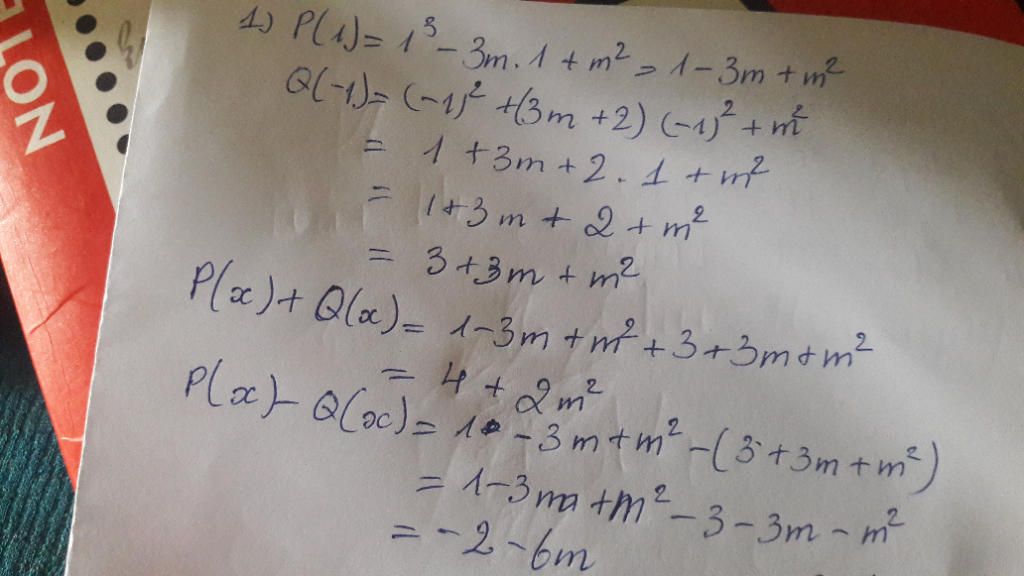 NOLE
1) P(1) = 1³ - 3m . 1 + m² = 1 - 3m + m²
Q(-1) = (-1)² + (3m + 2) (-1)² + m²
= 1 + 3m + 2 . 1 + m²
= 1 + 3m + 2 + m²
= 3 + 3m + m²
P(x) + Q(x) = 1 - 3m + m² + 3 + 3m + m²
= 4 + 2m²
P(x) - Q(x) = 1 - 3m + m² - (3 + 3m + m²)
= 1 - 3m + m² - 3 - 3m - m²
= -2 - 6m